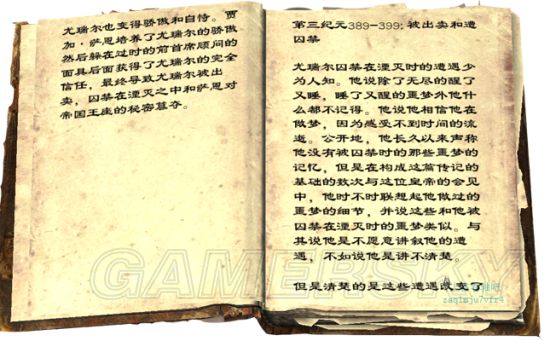 尤瑞尔也变得骄傲和自恃。贾
加·萨恩培养了尤瑞尔的骄傲
然后躲在过时的前首席顾问的
面具后面获得了尤瑞尔的完全
信任，最终导致尤瑞尔被出
卖，囚禁在湮灭之中和萨恩对
帝国王座的秘密篡夺。
第三纪元389-399：被出卖和遭
囚禁
尤瑞尔囚禁在湮灭时的遭遇少
为人知。他说除了无尽的醒了
又睡，睡了又醒的噩梦外他什
么都不记得。他说他相信他在
做梦，因为感受不到时间的流
逝。公开地，他长久以来声称
他没有被囚禁时的那些噩梦的
记忆，但是在构成这篇传记的
基础的数次与这位皇帝的会见
中，他时不时联想起他做过的
噩梦的细节，并说这些和他被
囚禁在湮灭时的噩梦类似。与
其说他是不愿意讲叙他的遭
遇，不如说他是讲不清楚。
但是清楚的是这些遭遇改变了
GAMERSKY
zaqimju7vfr4